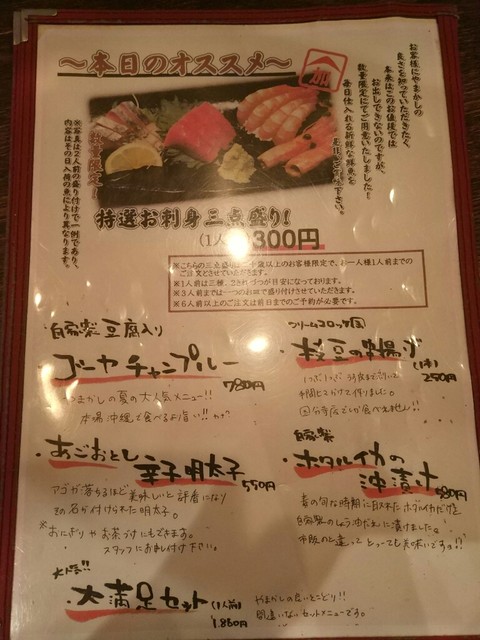 ～本日のオススメ～
お客様にやまかしの
良さを知っていただきたく、
本来はこのお値段では
お出しできないのですが、
数量限定にてご用意いたしました！
毎日仕入れる新鮮な鮮魚を
数量限定！
※写真は2人前の盛り付けで一例であり、
内容はその日入荷の魚により異なります。
特選お刺身三点盛り！
(1人 300円
※こちらの三点盛りは二十歳以上のお客様限定で、お一人様1人前までの
ご注文とさせていただきます。
※1人前は三種、2きれづつが目安になっております。
※3人前までは一つのお皿で盛り付けさせていただきます。
※6人前以上のご注文は前日までのご予約が必要です。
自家製豆腐入り
・ゴーヤチャンプルー
780円
やまかしの夏の大人気メニュー!!
本場沖縄で食べるより旨い!!
クリームコロッケ風
・枝豆の串揚げ
(1本)
250円
手間ヒマかけて作りました。
国分寺店でしか食べえません!!
・あごおとし
辛子明太子
550円
アゴが落ちるほど美味しいと評判になり
その名が付けられた明太子。
※おにぎりやお茶づけにもできます。
スタッフにお申し付け下さい。
自家製
・ホタルイカの
沖漬け
80円
春の旬な時期に取れたホタルイカだけを
自家製のしょう油だれに漬けました。
市販のと違ってとっても美味いですョ!!
大人気!!
・大満足セット(1人前)
1.860円
やまかしの良いとこどり!!
間違いないセットメニューです。